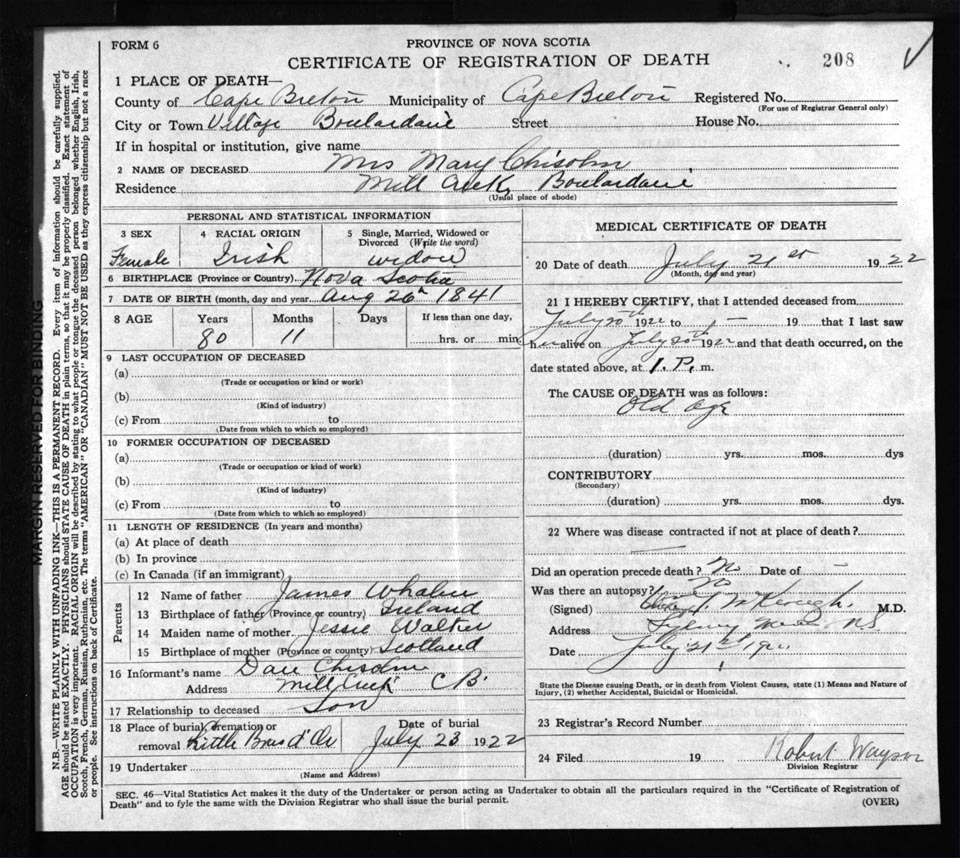 FORM 6
PROVINCE OF NOVA SCOTIA
CERTIFICATE OF REGISTRATION OF DEATH
208
1 PLACE OF DEATH—
County of Cape Breton Municipality of Cape Breton Registered No.
(For use of Registrar General only)
City or Town Village Boulardarie Street House No.
If in hospital or institution, give name
2 NAME OF DECEASED Mrs Mary Chisolm
Residence Mill Creek, Boulardarie
(Usual place of abode)
PERSONAL AND STATISTICAL INFORMATION
3 SEX Female
4 RACIAL ORIGIN Irish
5 Single, Married, Widowed or Divorced (Write the word) widow
6 BIRTHPLACE (Province or Country) Nova Scotia
7 DATE OF BIRTH (month, day and year Aug 26th 1841
8 AGE Years Months Days If less than one day,
80 11 hrs. or min
9 LAST OCCUPATION OF DECEASED
(a)
(Trade or occupation or kind or work)
(b)
(Kind of industry)
(c) From to
(Date from which to which so employed)
10 FORMER OCCUPATION OF DECEASED
(a)
(Trade or occupation or kind of work)
(b)
(Kind of industry)
(c) From to
(Date from which to which so employed)
11 LENGTH OF RESIDENCE (In years and months)
(a) At place of death
(b) In province
(c) In Canada (if an immigrant)
Parents
12 Name of father James Whalen
13 Birthplace of father (Province or country) Ireland
14 Maiden name of mother Jessie Walker
15 Birthplace of mother (Province or country) Scotland
16 Informant's name Dan Chisolm
Address Mill Creek C B.
17 Relationship to deceased Son
18 Place of burial, cremation or removal Little Bras d'Or
Date of burial July 23 1922
19 Undertaker
(Name and Address)
MEDICAL CERTIFICATE OF DEATH
20 Date of death July 21st 1922
(Month, day and year)
21 I HEREBY CERTIFY, that I attended deceased from
July 20th 192 to 19 that I last saw
h alive on July 20th 192 and that death occurred, on the
date stated above, at 1. P. m.
The CAUSE OF DEATH was as follows:
Old age
(duration) yrs. mos. dys
CONTRIBUTORY
(Secondary)
(duration) yrs. mos. dys.
22 Where was disease contracted if not at place of death?
Did an operation precede death? No Date of –
Was there an autopsy? No
(Signed) McKeough. M.D.
Address Sydney Mines NS
Date July 21st
State the Disease causing Death, or in death from Violent Causes, state (1) Means and Nature of
Injury, (2) whether Accidental, Suicidal or Homicidal.
23 Registrar's Record Number
24 Filed 19 Robert
Division Registrar
SEC. 46—Vital Statistics Act makes it the duty of the Undertaker or person acting as Undertaker to obtain all the particulars required in the "Certificate of Registration of
Death" and to fyle the same with the Division Registrar who shall issue the burial permit.
(OVER)
MARGIN RESERVED FOR BINDING
N.B.—WRITE PLAINLY WITH UNFADING INK—THIS IS A PERMANENT RECORD. Every item of information should be carefully supplied.
AGE should be stated EXACTLY. PHYSICIANS should STATE CAUSE OF DEATH in plain terms, so that it may be properly classified. Exact statement of
OCCUPATION is very important. RACIAL ORIGIN will be described by stating to what people or tongue the deceased person belonged, whether English, Irish,
Scotch, French, German, Russian, Ruthenian, etc. The terms "AMERICAN" OR "CANADIAN" MUST NOT BE USED as they express citizenship but not a race
or people. See instructions on back of Certificate.